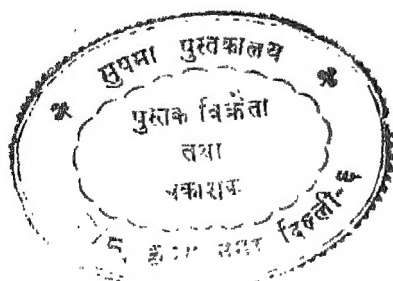 सुषमा पुस्तकालय
पुस्तक विक्रेता
तथा
प्रकाशक
नगर दिल्ली-६